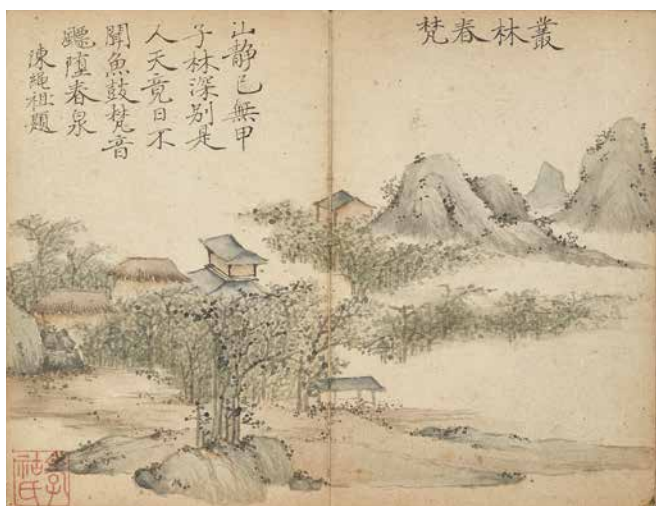 叢林春梵
山静已無甲
子林深别是
人天竟日不
聞魚鼓梵音
飄墮春泉
陳繩祖題